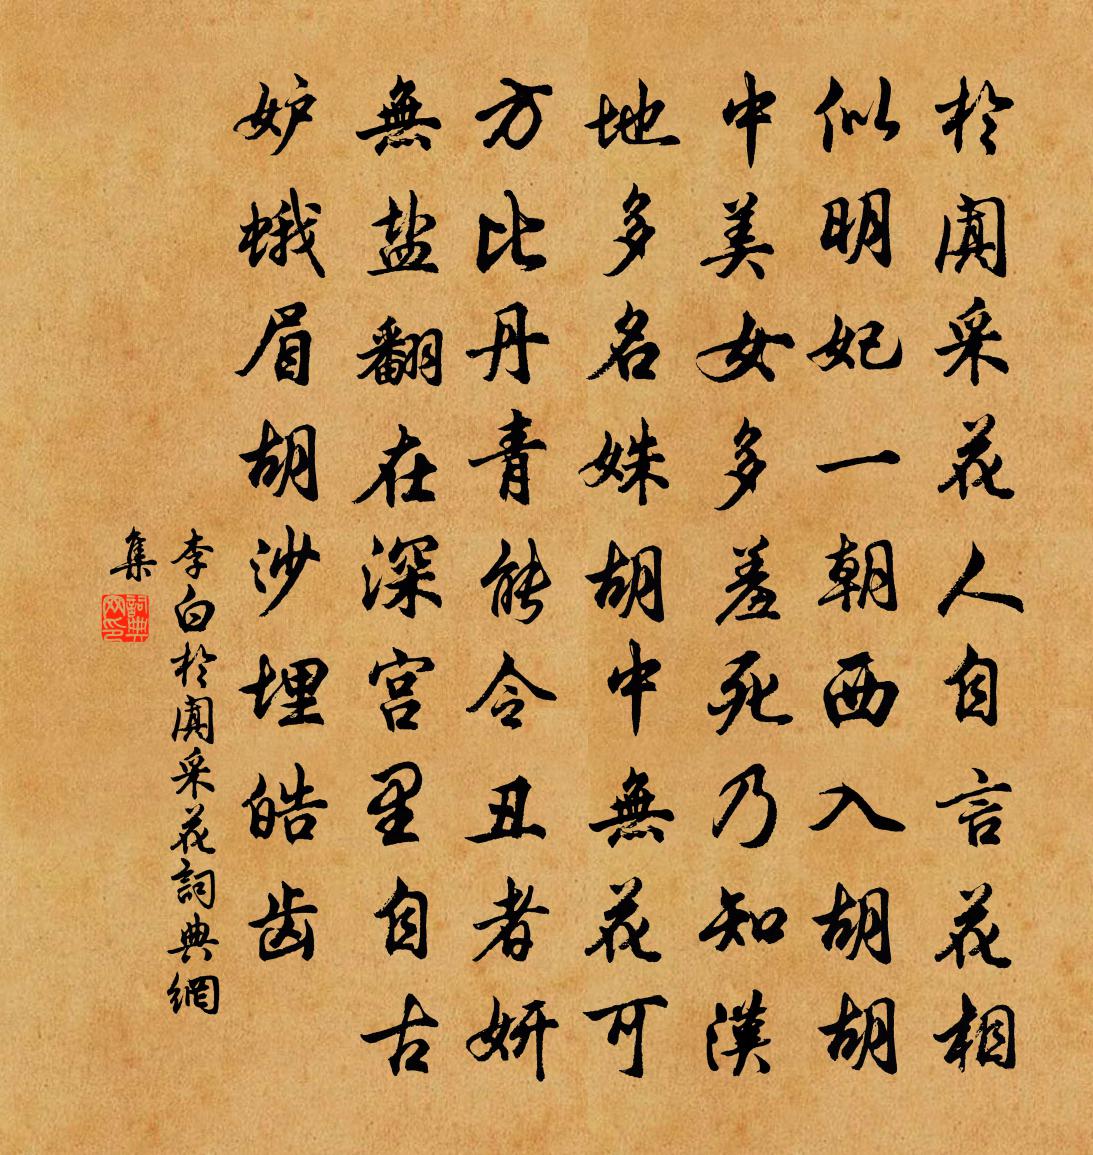 於闐采花人自言花相
似明妃一朝西入胡胡
中美女多羞死乃知漢
地多名姝胡中無花可
方比丹青能令丑者妍
無盐翻在深宫里自古
妒蛾眉胡沙埋皓齿
李白於闐采花詞典網
集
詞典網印